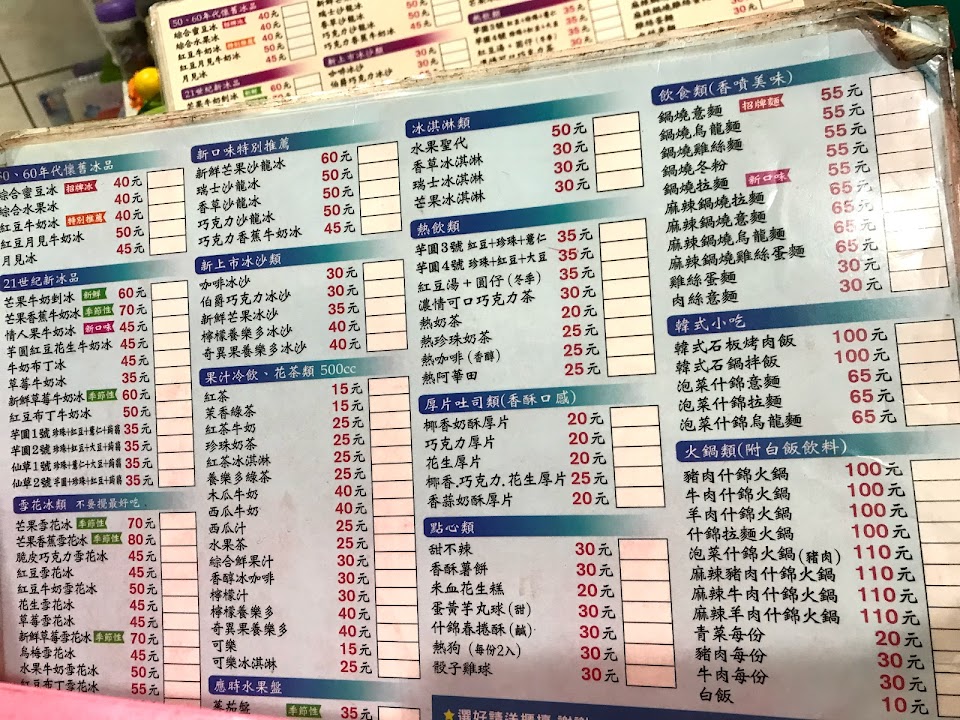 50、60年代懷舊冰品
綜合蜜豆冰 招牌冰 40元
綜合水果冰 40元
紅豆牛奶冰 特別推薦 45元
紅豆月見牛奶冰 50元
月見冰 45元
21世紀新冰品
芒果牛奶剉冰 新鮮
新鮮
香草沙龍冰
巧克力沙龍冰
巧克力香蕉牛奶冰 45元
新上市冰沙類
咖啡冰沙 30元
伯爵巧克力冰沙
熱飲類
紅豆湯+圓仔(冬季)
50、60年代懷舊冰品
綜合蜜豆冰 招牌冰 40元
綜合水果冰 40元
紅豆牛奶冰 特別推薦 40元
紅豆月見牛奶冰 50元
月見冰 45元
21世紀新冰品
芒果牛奶剉冰 新鮮 60元
芒果香蕉牛奶冰 季節性 70元
情人果牛奶冰 新口味 45元
芋圓紅豆花生牛奶冰 45元
牛奶布丁冰 45元
草莓牛奶冰 35元
新鮮草莓牛奶冰 季節性 60元
紅豆布丁牛奶冰 50元
芋圓1號 珍珠+紅豆+薏仁+蒟蒻 35元
芋圓2號 珍珠+紅豆+大豆+蒟蒻 35元
仙草1號 珍珠+薏仁+大豆+蒟蒻 35元
仙草2號 芋圓+珍珠+紅豆+蒟蒻 35元
雪花冰類 不要攪最好吃
芒果雪花冰 季節性 70元
芒果香蕉雪花冰 季節性 80元
脆皮巧克力雪花冰 45元
紅豆雪花冰 45元
紅豆牛奶雪花冰 50元
花生雪花冰 45元
草莓雪花冰 45元
新鮮草莓雪花冰 季節性 70元
烏梅雪花冰 45元
水果牛奶雪花冰 50元
紅豆布丁雪花冰 55元
新口味特別推薦
新鮮芒果沙龍冰 60元
瑞士沙龍冰 50元
香草沙龍冰 50元
巧克力沙龍冰 50元
巧克力香蕉牛奶冰 45元
新上市冰沙類
咖啡冰沙 30元
伯爵巧克力冰沙 30元
新鮮芒果冰沙 35元
檸檬養樂多冰沙 40元
奇異果養樂多冰沙 40元
果汁冷飲、花茶類 500cc
紅茶 15元
茉香綠茶 15元
紅茶牛奶 25元
珍珠奶茶 25元
紅茶冰淇淋 25元
養樂多綠茶 25元
木瓜牛奶 40元
西瓜牛奶 40元
西瓜汁 25元
水果茶 25元
綜合鮮果汁 30元
香醇冰咖啡 30元
檸檬汁 30元
檸檬養樂多 40元
奇異果養樂多 40元
可樂 15元
可樂冰淇淋 25元
應時水果盤
蕃茄盤 季節性 35元
冰淇淋類
水果聖代 50元
香草冰淇淋 30元
瑞士冰淇淋 30元
芒果冰淇淋 30元
熱飲類
芋圓3號 紅豆+珍珠+薏仁 35元
芋圓4號 珍珠+紅豆+大豆 35元
紅豆湯+圓仔(冬季) 35元
濃情可口巧克力茶 30元
熱奶茶 20元
熱珍珠奶茶 25元
熱咖啡(香醇) 25元
熱阿華田 25元
厚片吐司類(香酥口感)
椰香奶酥厚片 20元
巧克力厚片 20元
花生厚片 20元
椰香.巧克力.花生厚片 25元
香蒜奶酥厚片 20元
點心類
甜不辣 30元
香酥薯餅 30元
米血花生糕 20元
蛋黃芋丸球(甜) 30元
什錦春捲酥(鹹) 30元
熱狗(每份2入) 30元
骰子雞球 30元
★選好請洋櫃檯
飲食類(香噴美味)
鍋燒意麵 招牌麵 55元
鍋燒烏龍麵 55元
鍋燒雞絲麵 55元
鍋燒冬粉 55元
鍋燒拉麵 新口味 55元
麻辣鍋燒拉麵 65元
麻辣鍋燒意麵 65元
麻辣鍋燒烏龍麵 65元
麻辣鍋燒雞絲蛋麵 65元
雞絲蛋麵 30元
肉絲意麵 30元
韓式小吃
韓式石板烤肉飯 100元
韓式石鍋拌飯 100元
泡菜什錦意麵 65元
泡菜什錦拉麵 65元
泡菜什錦烏龍麵 65元
火鍋類(附白飯飲料)
豬肉什錦火鍋 100元
牛肉什錦火鍋 100元
羊肉什錦火鍋 100元
什錦拉麵火鍋 100元
泡菜什錦火鍋(豬肉) 110元
麻辣豬肉什錦火鍋 110元
麻辣牛肉什錦火鍋 110元
麻辣羊肉什錦火鍋 110元
青菜每份 20元
豬肉每份 30元
牛肉每份 30元
白飯 10元